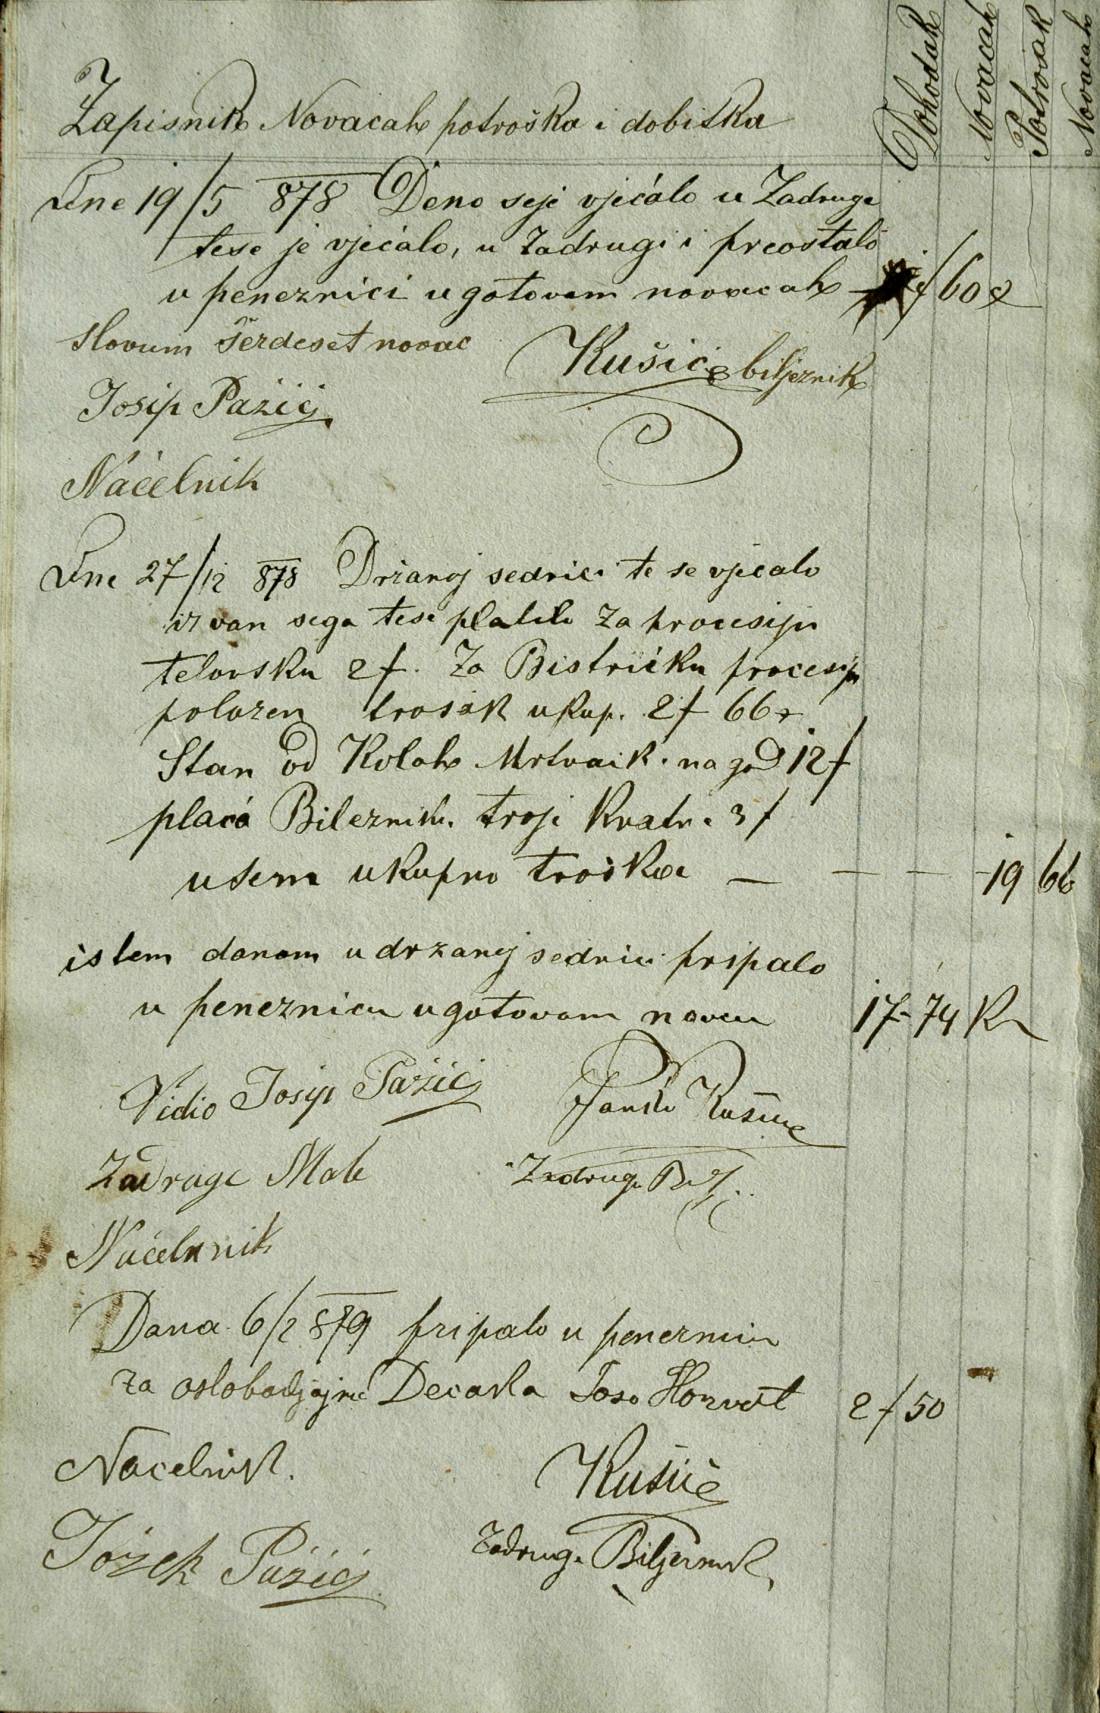 Dohodak
Novacah
Potrošak
Novacah
Zapisnik Novacah potroška i dobitka
Dne 19/5 878 Deno seje vjećalo u Zadruge
tese je vjećalo, u Zadrugi i preostalo
u peneznici u gotovem novacah — f 60
Slovum šezdeset novac
Kušić biljeznik
Josip Pazić
Náčelnik
Dne 27/12 878 Držanoj sednici te se vjecalo
izvan sega tese platilo za procesiju
telovsku 2 f. Za Bistričku procesiju
polozen trosak ukup. 2 f 66
Stan od Kolah Mrtvaik. na god 12 f
plaća Bileznik. troji Kvatr. 3 f
usem ukupno troška — — — 19 66
istem danom u drzanoj sednici pripalo
u peneznicu u gotovom novcu 17-74 K
Vidio Josip Pazić
Janko Kušić
Zadruge Mate
Zadruge Bilj.
Načelnnik
Dana 6/2 879 pripalo u peneznicu
za oslobodjajne Decaka Joso Horvat 2 f 50
Nacelnik.
Kušić
Józek Pázić
Zadruge Biljeznik